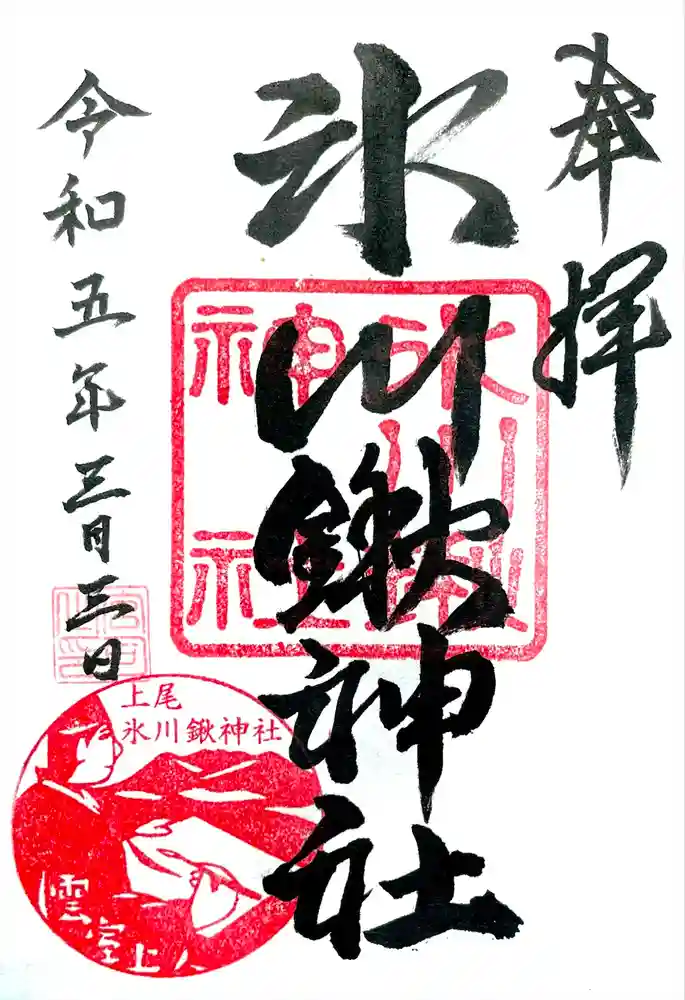 奉拝
氷川鍬神社
令和五年三月三日
氷川鍬神社
上尾
氷川鍬神社
雲室上人